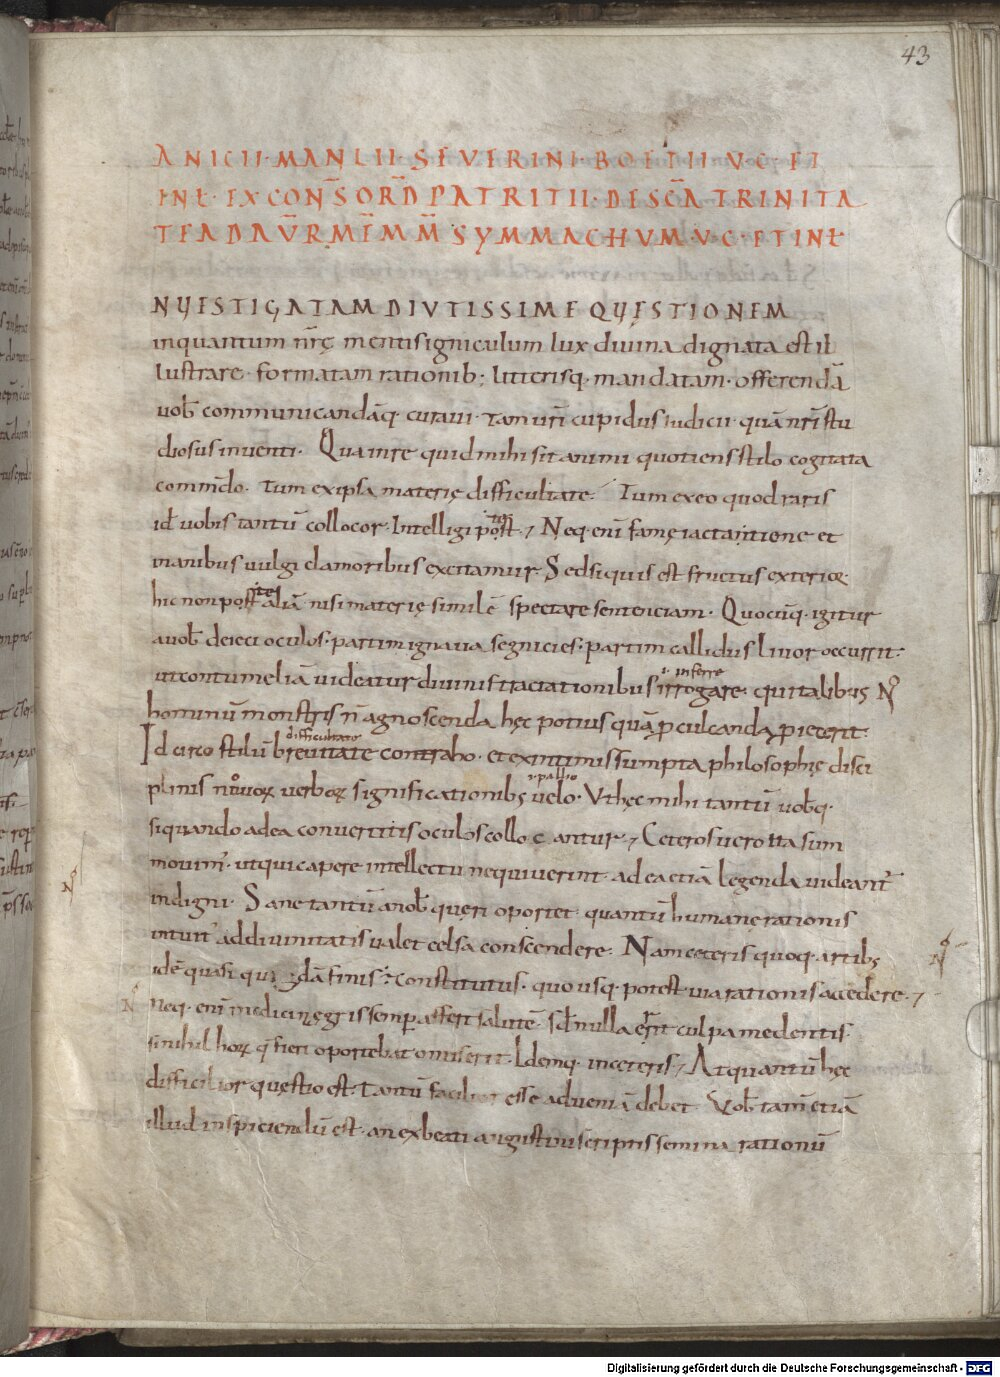 43
ANICII·MANLII·SEVERINI·BOETII·V·C·ET
INŁ·EX CON̅S ORD̅ PATRITII·DE SC̅A TRINITA
TE AD AV̅R̅ ME̅M̅M̅ SYMMACHVM·V·C·ET INŁ
NVESTIGATAM DIVTISSIME QVĘSTIONEM
inquantum nr̅ę mentis igniculum lux diuina dignata est il
lustrare· formatam rationib; litterisq· mandatam· offerenda̅
uob̅ communicanda̅q· curaui· tam ur̅i cupidus iudicii· qua̅ nr̅i stu
diosus inuenti· Qua in re quid mihi sit animi quotiens stilo cogitata
comm̅do· tum ex ipsa materię difficultate· Tum ex eo quod raris
id̅ uobis tantu̅ collocor· Intelligi post· Neq· eni̅ famę iactantione et
inanibus uulgi clamoribus excitamur Sed si quis est fructus exterior
hic non post alia̅ nisi materię simile̅ sperare sentenciam· Quocu̅q· igitur
a uob̅ deieci oculos· partim ignaua segnicies· partim callidus liuor occurrit·
ł inferre
ut contumelia̅ uideatur diuinis tractationibus irrogare· qui talibus
hominu̅ monstris n̅ agnoscenda hęc potius qua̅ p̲culcanda p̲ieterit·
difficultate
Idcirco stilu̅ breuitate contraho· et ex intimis sumpta philosophię disci
ł pallio
plinis nouor̲ verbor̲ significationibs uelo· Vt hęc mihi tantu̅ uob̅q·
si quando ad ea conuertitis oculos collocantur· Ceteros uero ita sum
mouim᾽· ut qui capere intellectu nequiuerint· ad ea etia̅ legenda uideant᾽
indigni· Sane tantu̅ a nob̅ queri oportet· quantu̅ humanę rationis
intuit᾽ ad diuinitatis ualet celsa conscendere· Nam ceteris quoq· artibs
ide̅ quasi quida̅ finis· constitutus· quousq· potest uia rationis accedere·
Neq· eni̅ medicin ęgris semp̲ affert salute̅· sd̅ nulla erit culpa medentis
si nihil hor̲ q̇ fieri oportebat omiserit· Idemq· in ceteris· At quantu̅ hęc
difficilior quęstio est· tantu̅ facilior esse ad uenia̅ debet· Vob̅ tam̅ etia̅
illud inspiciendu̅ est· an ex beati augustini scriptis semina rationu̅
Digitalisierung gefördert durch die Deutsche Forschungsgemeinschaft - DFG